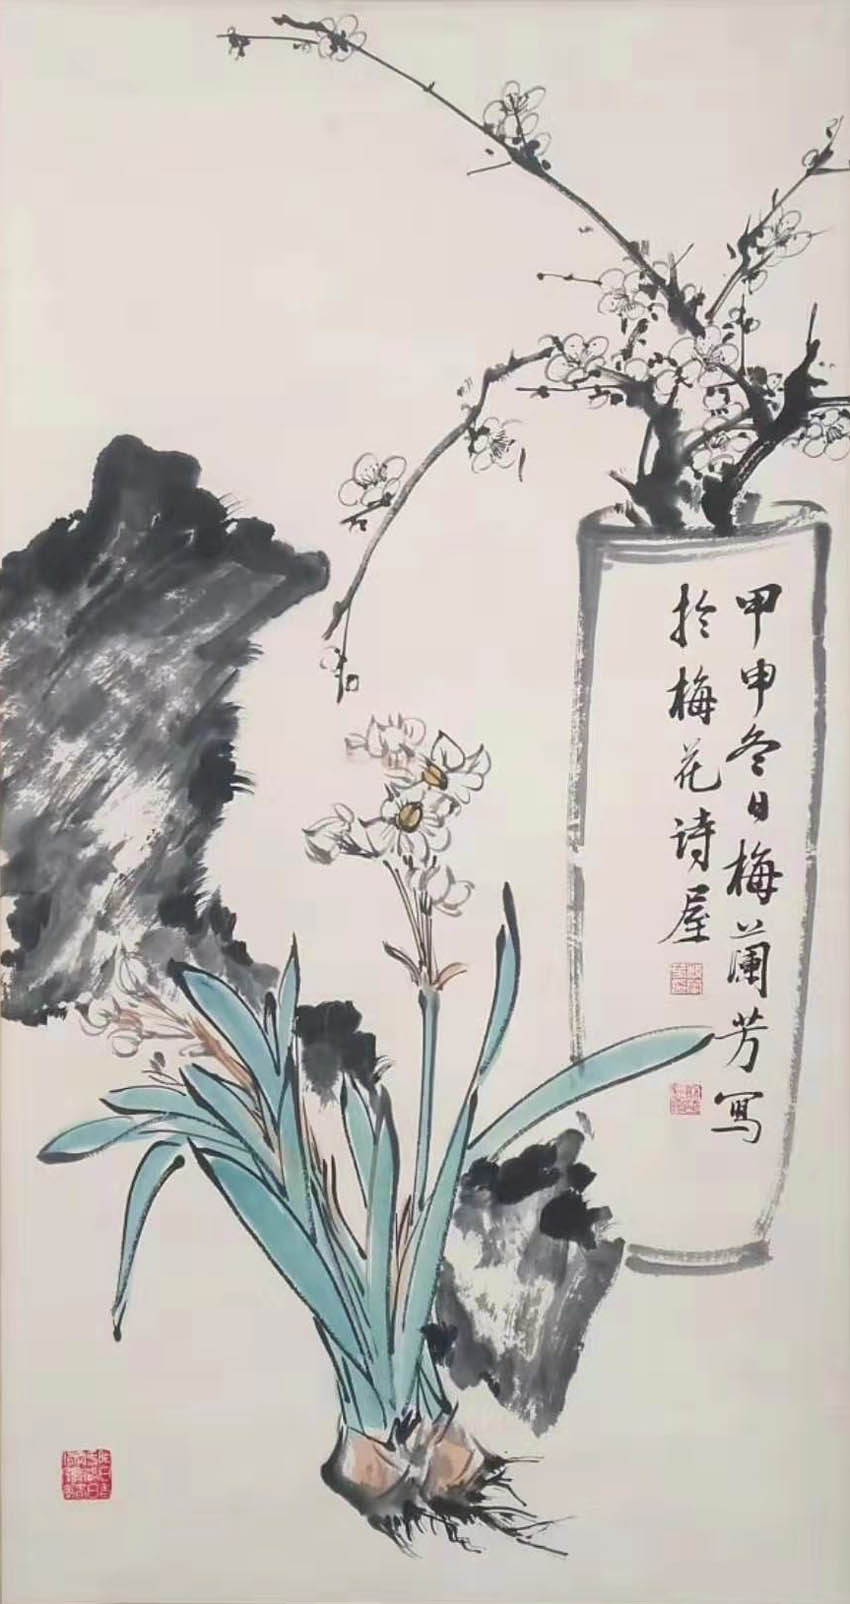 甲申冬日梅蘭芳写
於梅花诗屋